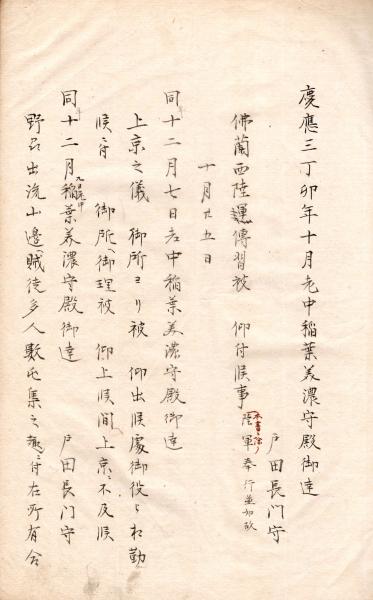 慶應三丁卯年十月老中稲葉美濃守殿御達
戸田長門守
佛蘭西陸運傳習被 仰付候事
陸軍奉行並如故
十月廿五日
同十二月七日老中稲葉美濃守殿御達
上京之儀 御所ヨリ被 仰出候處御役ら相勤
候ニ付 御所江御理被 仰上候間上京ニ不及候
同十二月稲葉美濃守殿御達 戸田長門守
野州出流山邊賊徒多人數屯集之趣ニ付在所有合